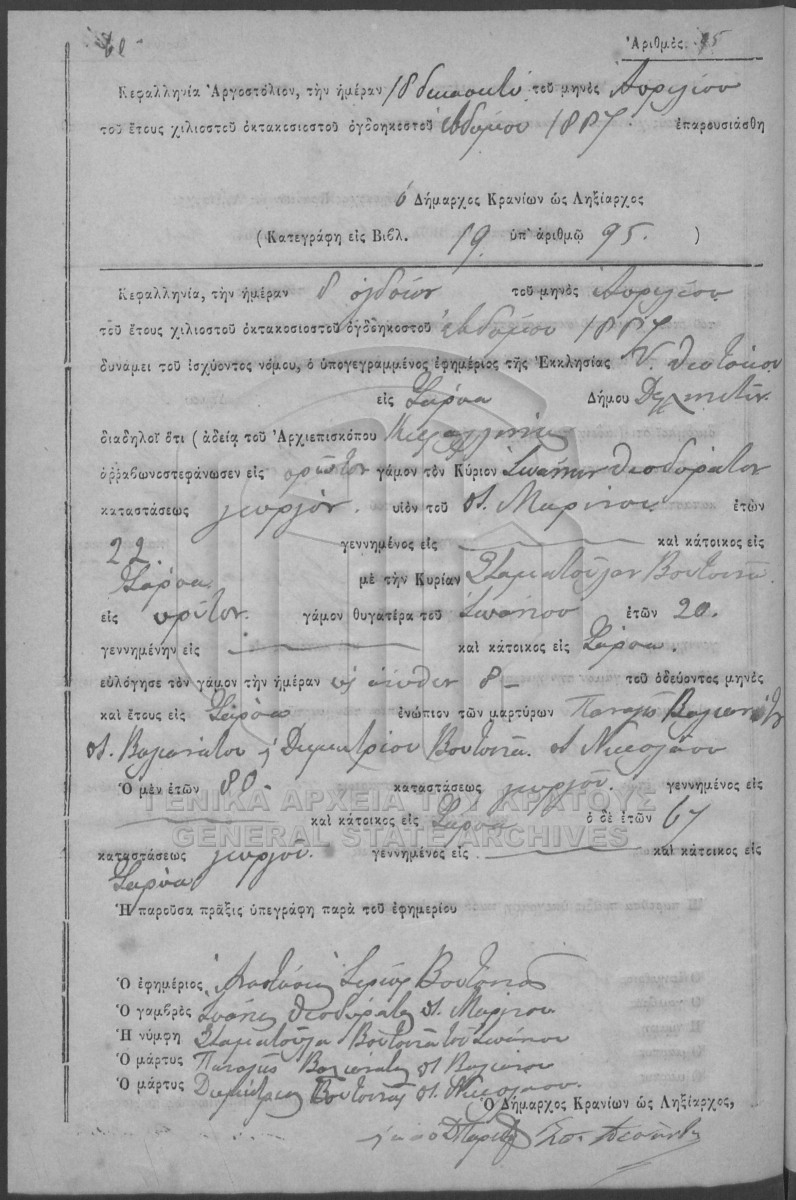 Ἀριθμὸς 95
Κεφαλληνία Ἀργοστόλιον, τὴν ἡμέραν 18 δεκαοκτὼ τοῦ μηνὸς Ἀπριλίου
τοῦ ἔτους χιλιοστοῦ ὀκτακοσιοστοῦ ὀγδοηκοστοῦ ἑβδόμου 1887 ἐπαρουσιάσθη
ὁ Δήμαρχος Κρανίων ὡς Ληξίαρχος
(Κατεγράφη εἰς Βιβλ. 19. ὑπ' ἀριθμῷ 95. )
Κεφαλληνία, τὴν ἡμέραν 8 ὀγδόην τοῦ μηνὸς Ἀπριλίου
τοῦ ἔτους χιλιοστοῦ ὀκτακοσιοστοῦ ὀγδοηκοστοῦ ἑβδόμου 1887
δυνάμει τοῦ ἰσχύοντος νόμου, ὁ ὑπογεγραμμένος ἐφημέριος τῆς Ἐκκλησίας Υ. Θεοτόκου
εἰς Ζάρσα Δήμου
διαδηλοῖ ὅτι (ἀδείᾳ τοῦ Ἀρχιεπισκόπου Κεφαλληνίας
ἀῤῥαβωνοστεφάνωσεν εἰς πρῶτον γάμον τὸν Κύριον Ἰωάννην Θεοδωράτον
καταστάσεως γεωργὸν. υἱὸν τοῦ π. Μαρίνου ἐτῶν
22. γεννημένος εἰς καὶ κάτοικος εἰς
Ζάρσα. μὲ τὴν Κυρίαν Σταματούλαν Βουτσινᾶ
εἰς πρῶτον. γάμον θυγατέρα τοῦ Ἰωάννου ἐτῶν 20.
γεννημένην εἰς καὶ κάτοικος εἰς Ζάρσα.
εὐλόγησε τὸν γάμον τὴν ἡμέραν ὡς ἄνωθεν 8 - τοῦ ὁδεύοντος μηνὸς
καὶ ἔτους εἰς Ζάρσα ἐνώπιον τῶν μαρτύρων Παναγῆς
π. Δημητρίου Βουτσινᾶ π. Νικολάου
Ὁ μὲν ἐτῶν 80 - καταστάσεως γεωργοῦ. γεννημένος εἰς
καὶ κάτοικος εἰς Ζάρσα ὁ δὲ ἐτῶν 67
καταστάσεως γεωργοῦ. γεννημένος εἰς καὶ κάτοικος εἰς
Ζάρσα
ΓΕΝΙΚΑ ΑΡΧΕΙΑ ΤΟΥ ΚΡΑΤΟΥΣ
GENERAL STATE ARCHIVES
Ἡ παροῦσα πρᾶξις ὑπεγράφη παρὰ τοῦ ἐφημερίου
Ὁ ἐφημέριος Ἀναστάσιος Ἱερεὺς Βουτσινᾶς
Ὁ γαμβρὸς Ἰωάννης Θεοδωράτος π. Μαρίνου
Ἡ νύμφη Σταματούλα Βουτσινᾶ τοῦ Ἰωάννου
Ὁ μάρτυς Παναγῆς
Ὁ μάρτυς Δημήτριος Βουτσινᾶς π. Νικολάου.
Ὁ Δήμαρχος Κρανίων ὡς Ληξίαρχος,